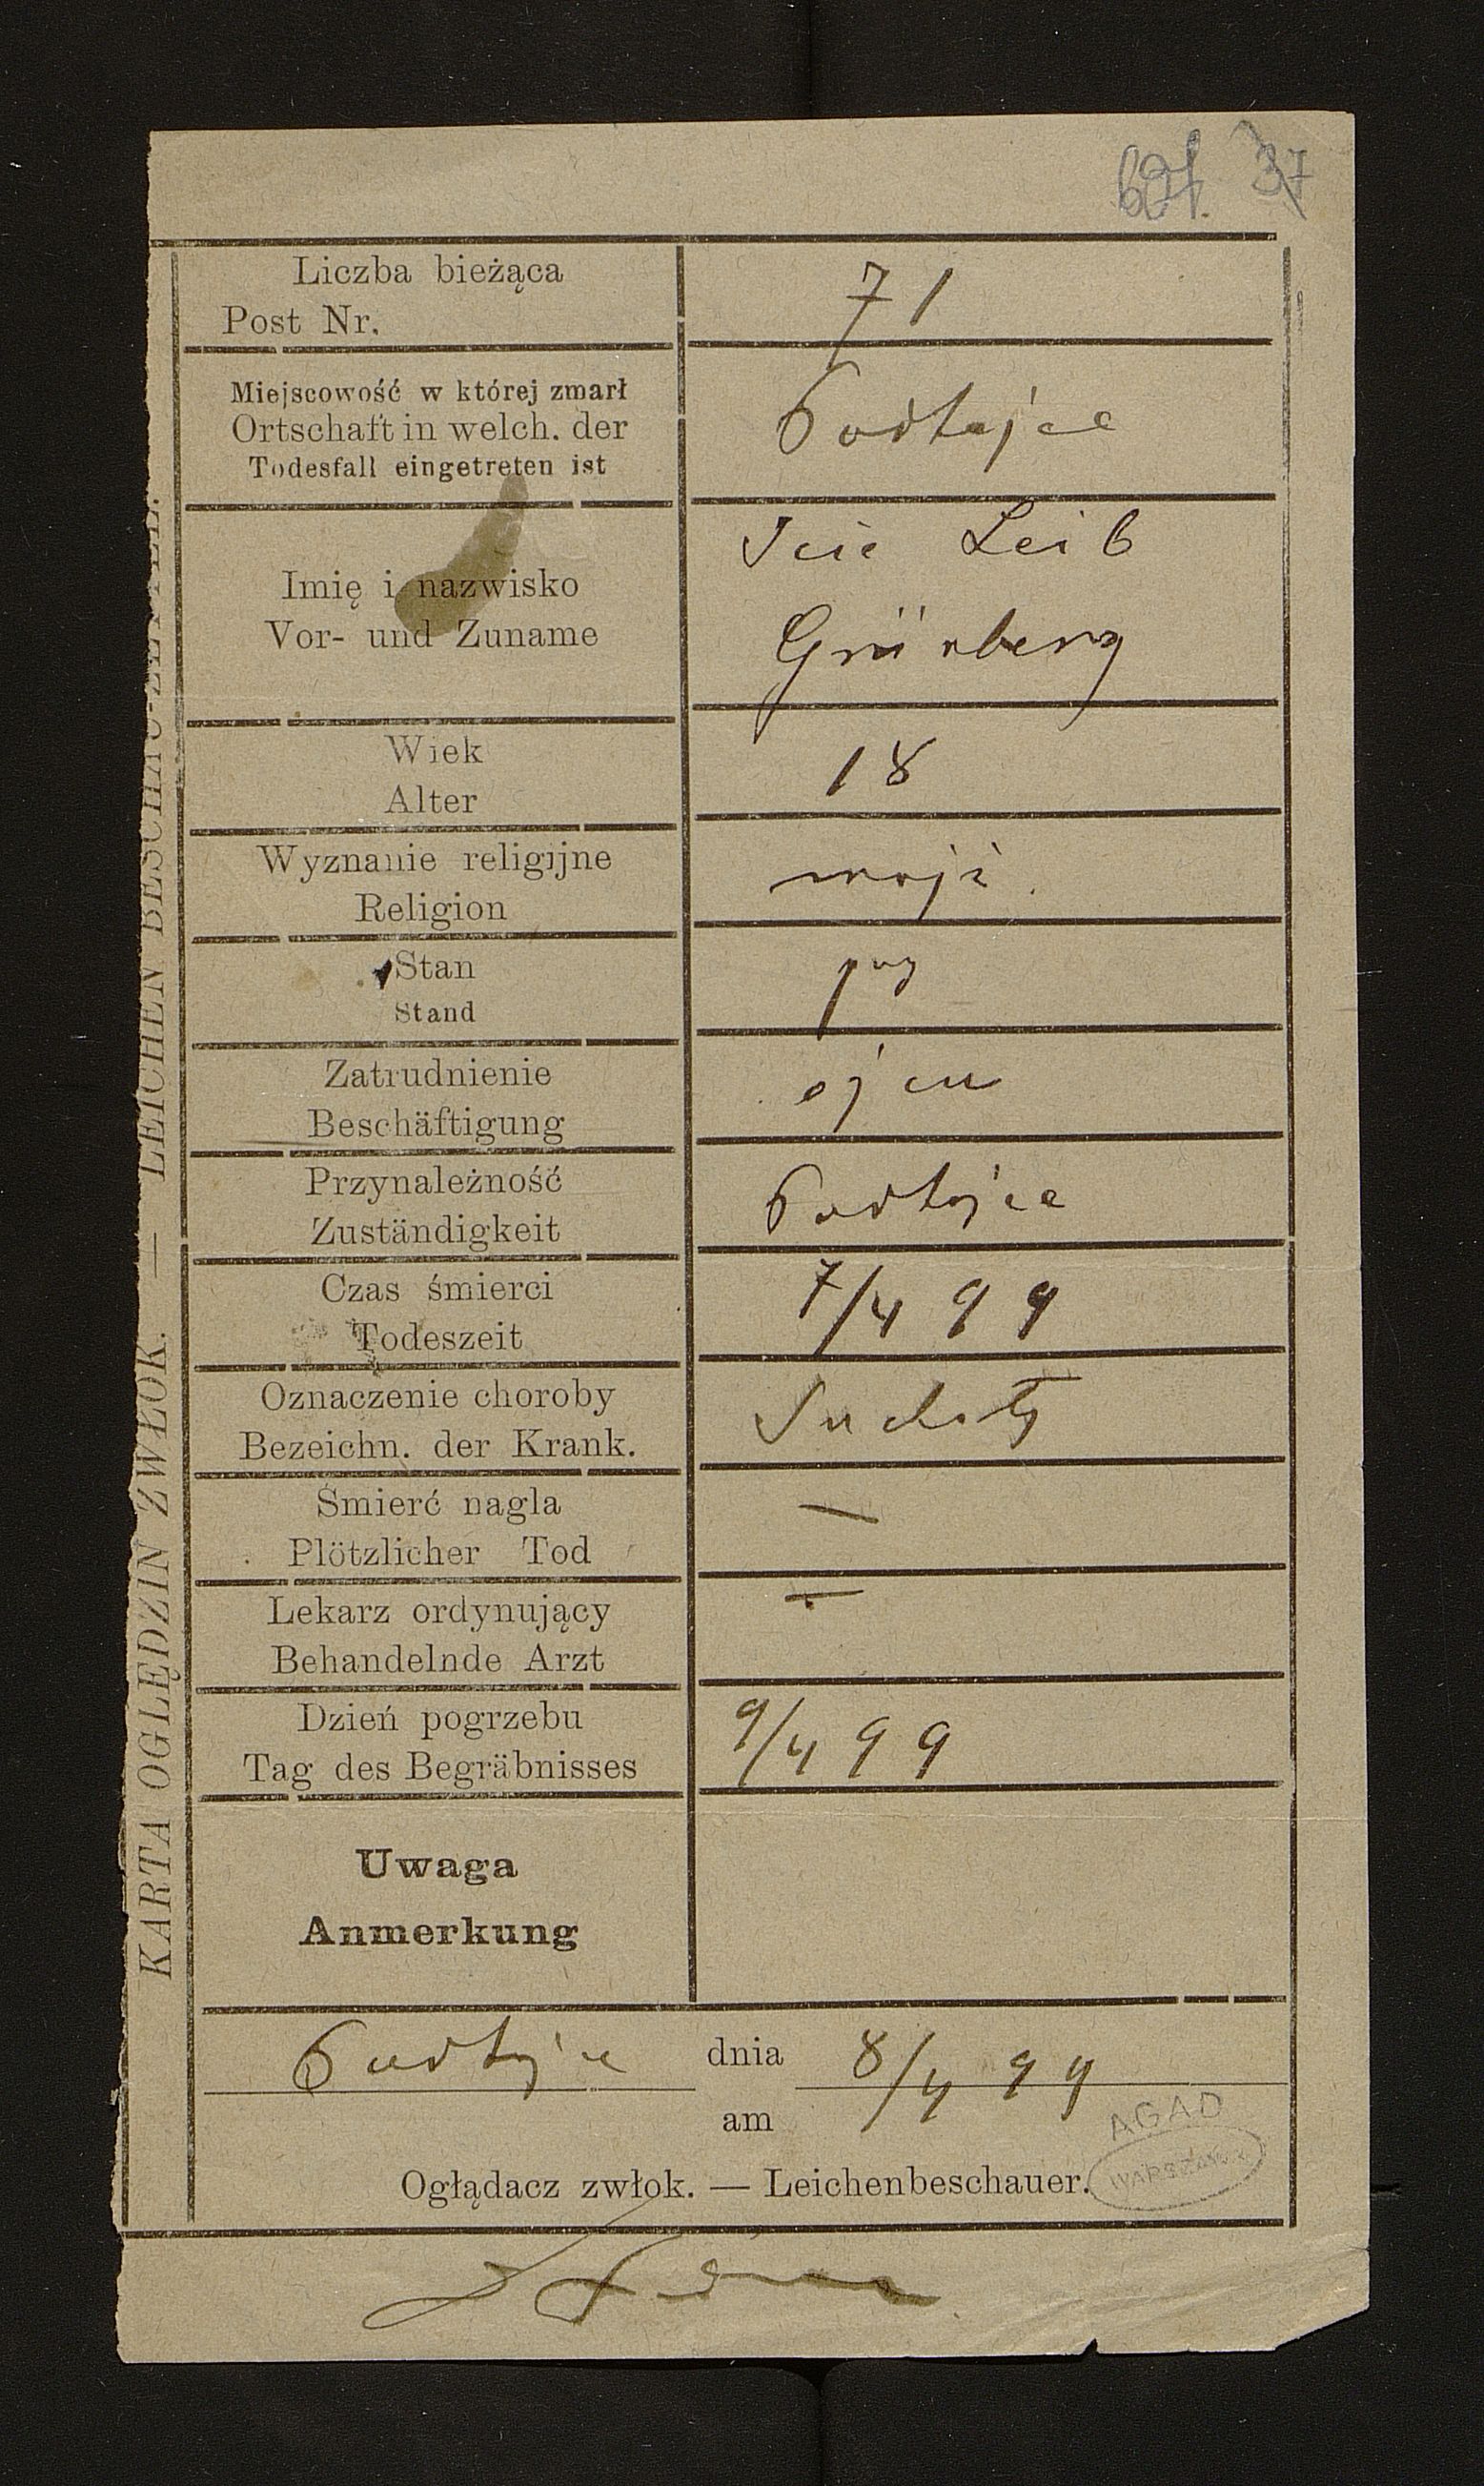 37
Liczba bieżąca
Post Nr.
71
Miejscowość w której zmarł
Ortschaft in welch. der
Todesfall eingetreten ist
Podhajce
Imię i nazwisko
Vor- und Zuname
Leib
Grünberg
Wiek
Alter
18
Wyznanie religijne
Religion
mojż.
Stan
Stand
Zatrudnienie
Beschäftigung
Przynależność
Zuständigkeit
Podhajce
Czas śmierci
Todeszeit
7/4 99
Oznaczenie choroby
Bezeichn. der Krank.
Suchoty
Śmierć nagla
Plötzlicher Tod
—
Lekarz ordynujący
Behandelnde Arzt
—
Dzień pogrzebu
Tag des Begräbnisses
9/4 99
Uwaga
Anmerkung
Podhajce dnia 8/4 99
am
AGAD
WARSZAWA
Oglądacz zwłok. — Leichenbeschauer.
KARTA OGLĘDZIN ZWŁOK. — LEICHEN BESCHAU-ZETTEL.